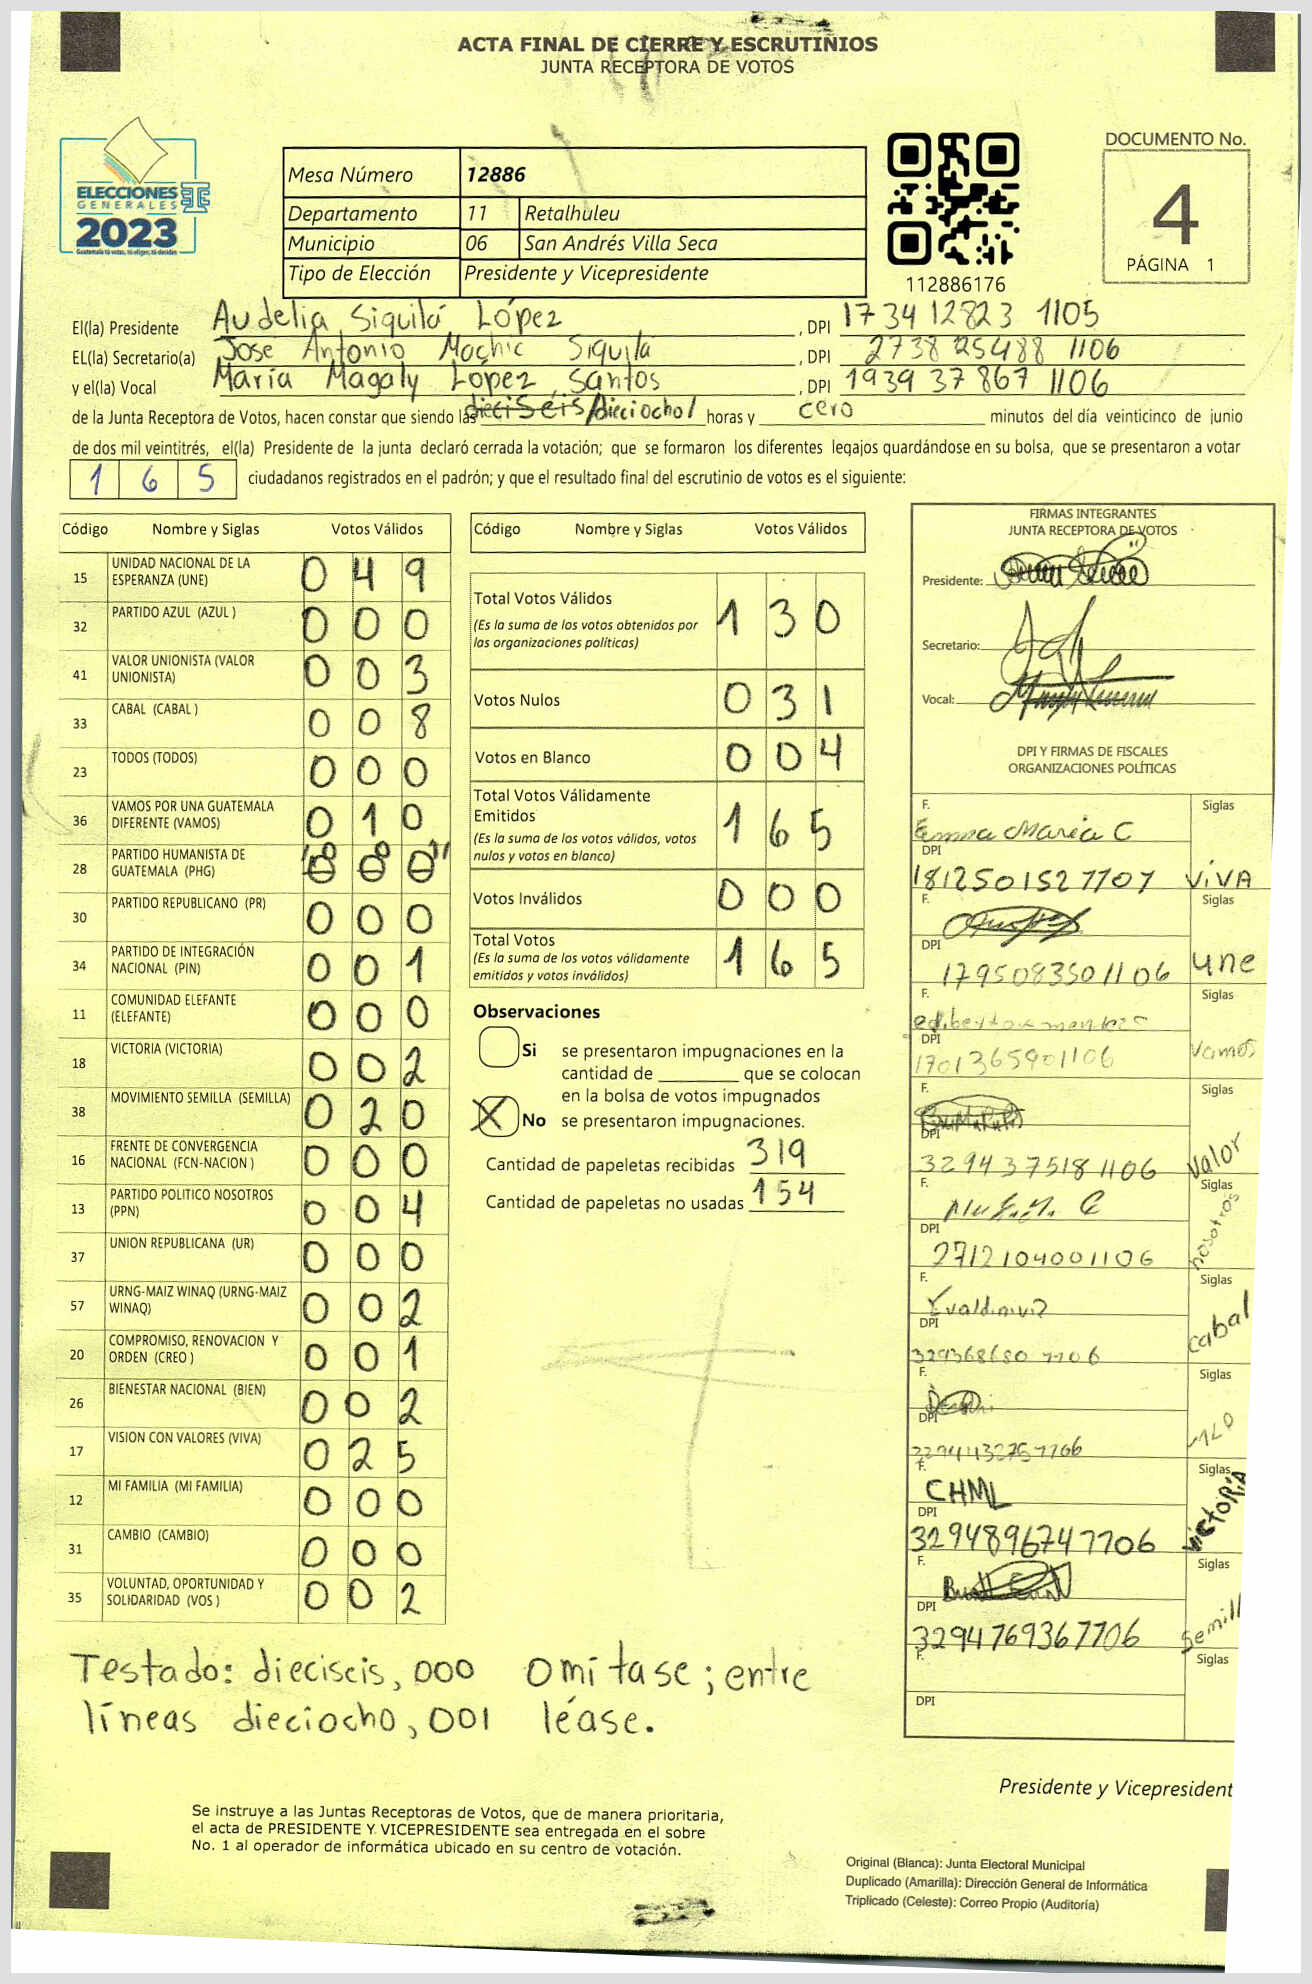 ACTA FINAL DE CIERRE Y ESCRUTINIOS
JUNTA RECEPTORA DE VOTOS
ELECCIONES
GENERALES
2023
Guatemala tú votas, tú eliges, tú decides
Mesa Número 12886
Departamento 11 Retalhuleu
Municipio 06 San Andrés Villa Seca
Tipo de Elección Presidente y Vicepresidente
112886176
DOCUMENTO No.
4
PÁGINA 1
El(la) Presidente Audelia Siquilá López , DPI 1734 12823 1105
EL(la) Secretario(a) Jose Antonio Mochic Siquila , DPI 2738 25488 1106
y el(la) Vocal María Magaly López Santos , DPI 1939 37867 1106
de la Junta Receptora de Votos, hacen constar que siendo las dieciseis/dieciocho/ horas y cero minutos del día veinticinco de junio
de dos mil veintitrés, el(la) Presidente de la junta declaró cerrada la votación; que se formaron los diferentes legajos guardándose en su bolsa, que se presentaron a votar
165 ciudadanos registrados en el padrón; y que el resultado final del escrutinio de votos es el siguiente:
Código Nombre y Siglas Votos Válidos
15 UNIDAD NACIONAL DE LA ESPERANZA (UNE) 049
32 PARTIDO AZUL (AZUL ) 000
41 VALOR UNIONISTA (VALOR UNIONISTA) 003
33 CABAL (CABAL ) 008
23 TODOS (TODOS) 000
36 VAMOS POR UNA GUATEMALA DIFERENTE (VAMOS) 010
28 PARTIDO HUMANISTA DE GUATEMALA (PHG) 000 /001/
30 PARTIDO REPUBLICANO (PR) 000
34 PARTIDO DE INTEGRACIÓN NACIONAL (PIN) 001
11 COMUNIDAD ELEFANTE (ELEFANTE) 000
18 VICTORIA (VICTORIA) 002
38 MOVIMIENTO SEMILLA (SEMILLA) 020
16 FRENTE DE CONVERGENCIA NACIONAL (FCN-NACION ) 000
13 PARTIDO POLITICO NOSOTROS (PPN) 004
37 UNION REPUBLICANA (UR) 000
57 URNG-MAIZ WINAQ (URNG-MAIZ WINAQ) 002
20 COMPROMISO, RENOVACION Y ORDEN (CREO ) 001
26 BIENESTAR NACIONAL (BIEN) 002
17 VISION CON VALORES (VIVA) 025
12 MI FAMILIA (MI FAMILIA) 000
31 CAMBIO (CAMBIO) 000
35 VOLUNTAD, OPORTUNIDAD Y SOLIDARIDAD (VOS ) 002
Código Nombre y Siglas Votos Válidos
Total Votos Válidos 130
(Es la suma de los votos obtenidos por
las organizaciones políticas)
Votos Nulos 031
Votos en Blanco 004
Total Votos Válidamente
Emitidos 165
(Es la suma de los votos válidos, votos
nulos y votos en blanco)
Votos Inválidos 000
Total Votos 165
(Es la suma de los votos válidamente
emitidos y votos inválidos)
Observaciones
Si se presentaron impugnaciones en la
cantidad de ________ que se colocan
en la bolsa de votos impugnados
X No se presentaron impugnaciones.
Cantidad de papeletas recibidas 319
Cantidad de papeletas no usadas 154
FIRMAS INTEGRANTES
JUNTA RECEPTORA DE VOTOS
Presidente:
Secretario:
Vocal:
DPI Y FIRMAS DE FISCALES
ORGANIZACIONES POLÍTICAS
F. Siglas
Emma Maria C
DPI
1812501527707 VIVA
F. Siglas
DPI
1795083501106 une
F. Siglas
DPI
1701365901106 Vamos
F. Siglas
DPI
3294375181106 Valor
F. Siglas
DPI
2712104001106 nosotros
F. Siglas
DPI
cabal
F. Siglas
DPI
F. Siglas
CHML
DPI
3294896747706 VICTORIA
F. Siglas
DPI
3294769367706 Semill
F. Siglas
DPI
Testado: dieciseis, 000 omitase; entre
líneas dieciocho, 001 léase.
Presidente y Vicepresident
Se instruye a las Juntas Receptoras de Votos, que de manera prioritaria,
el acta de PRESIDENTE Y VICEPRESIDENTE sea entregada en el sobre
No. 1 al operador de informática ubicado en su centro de votación.
Original (Blanca): Junta Electoral Municipal
Duplicado (Amarilla): Dirección General de Informática
Triplicado (Celeste): Correo Propio (Auditoría)